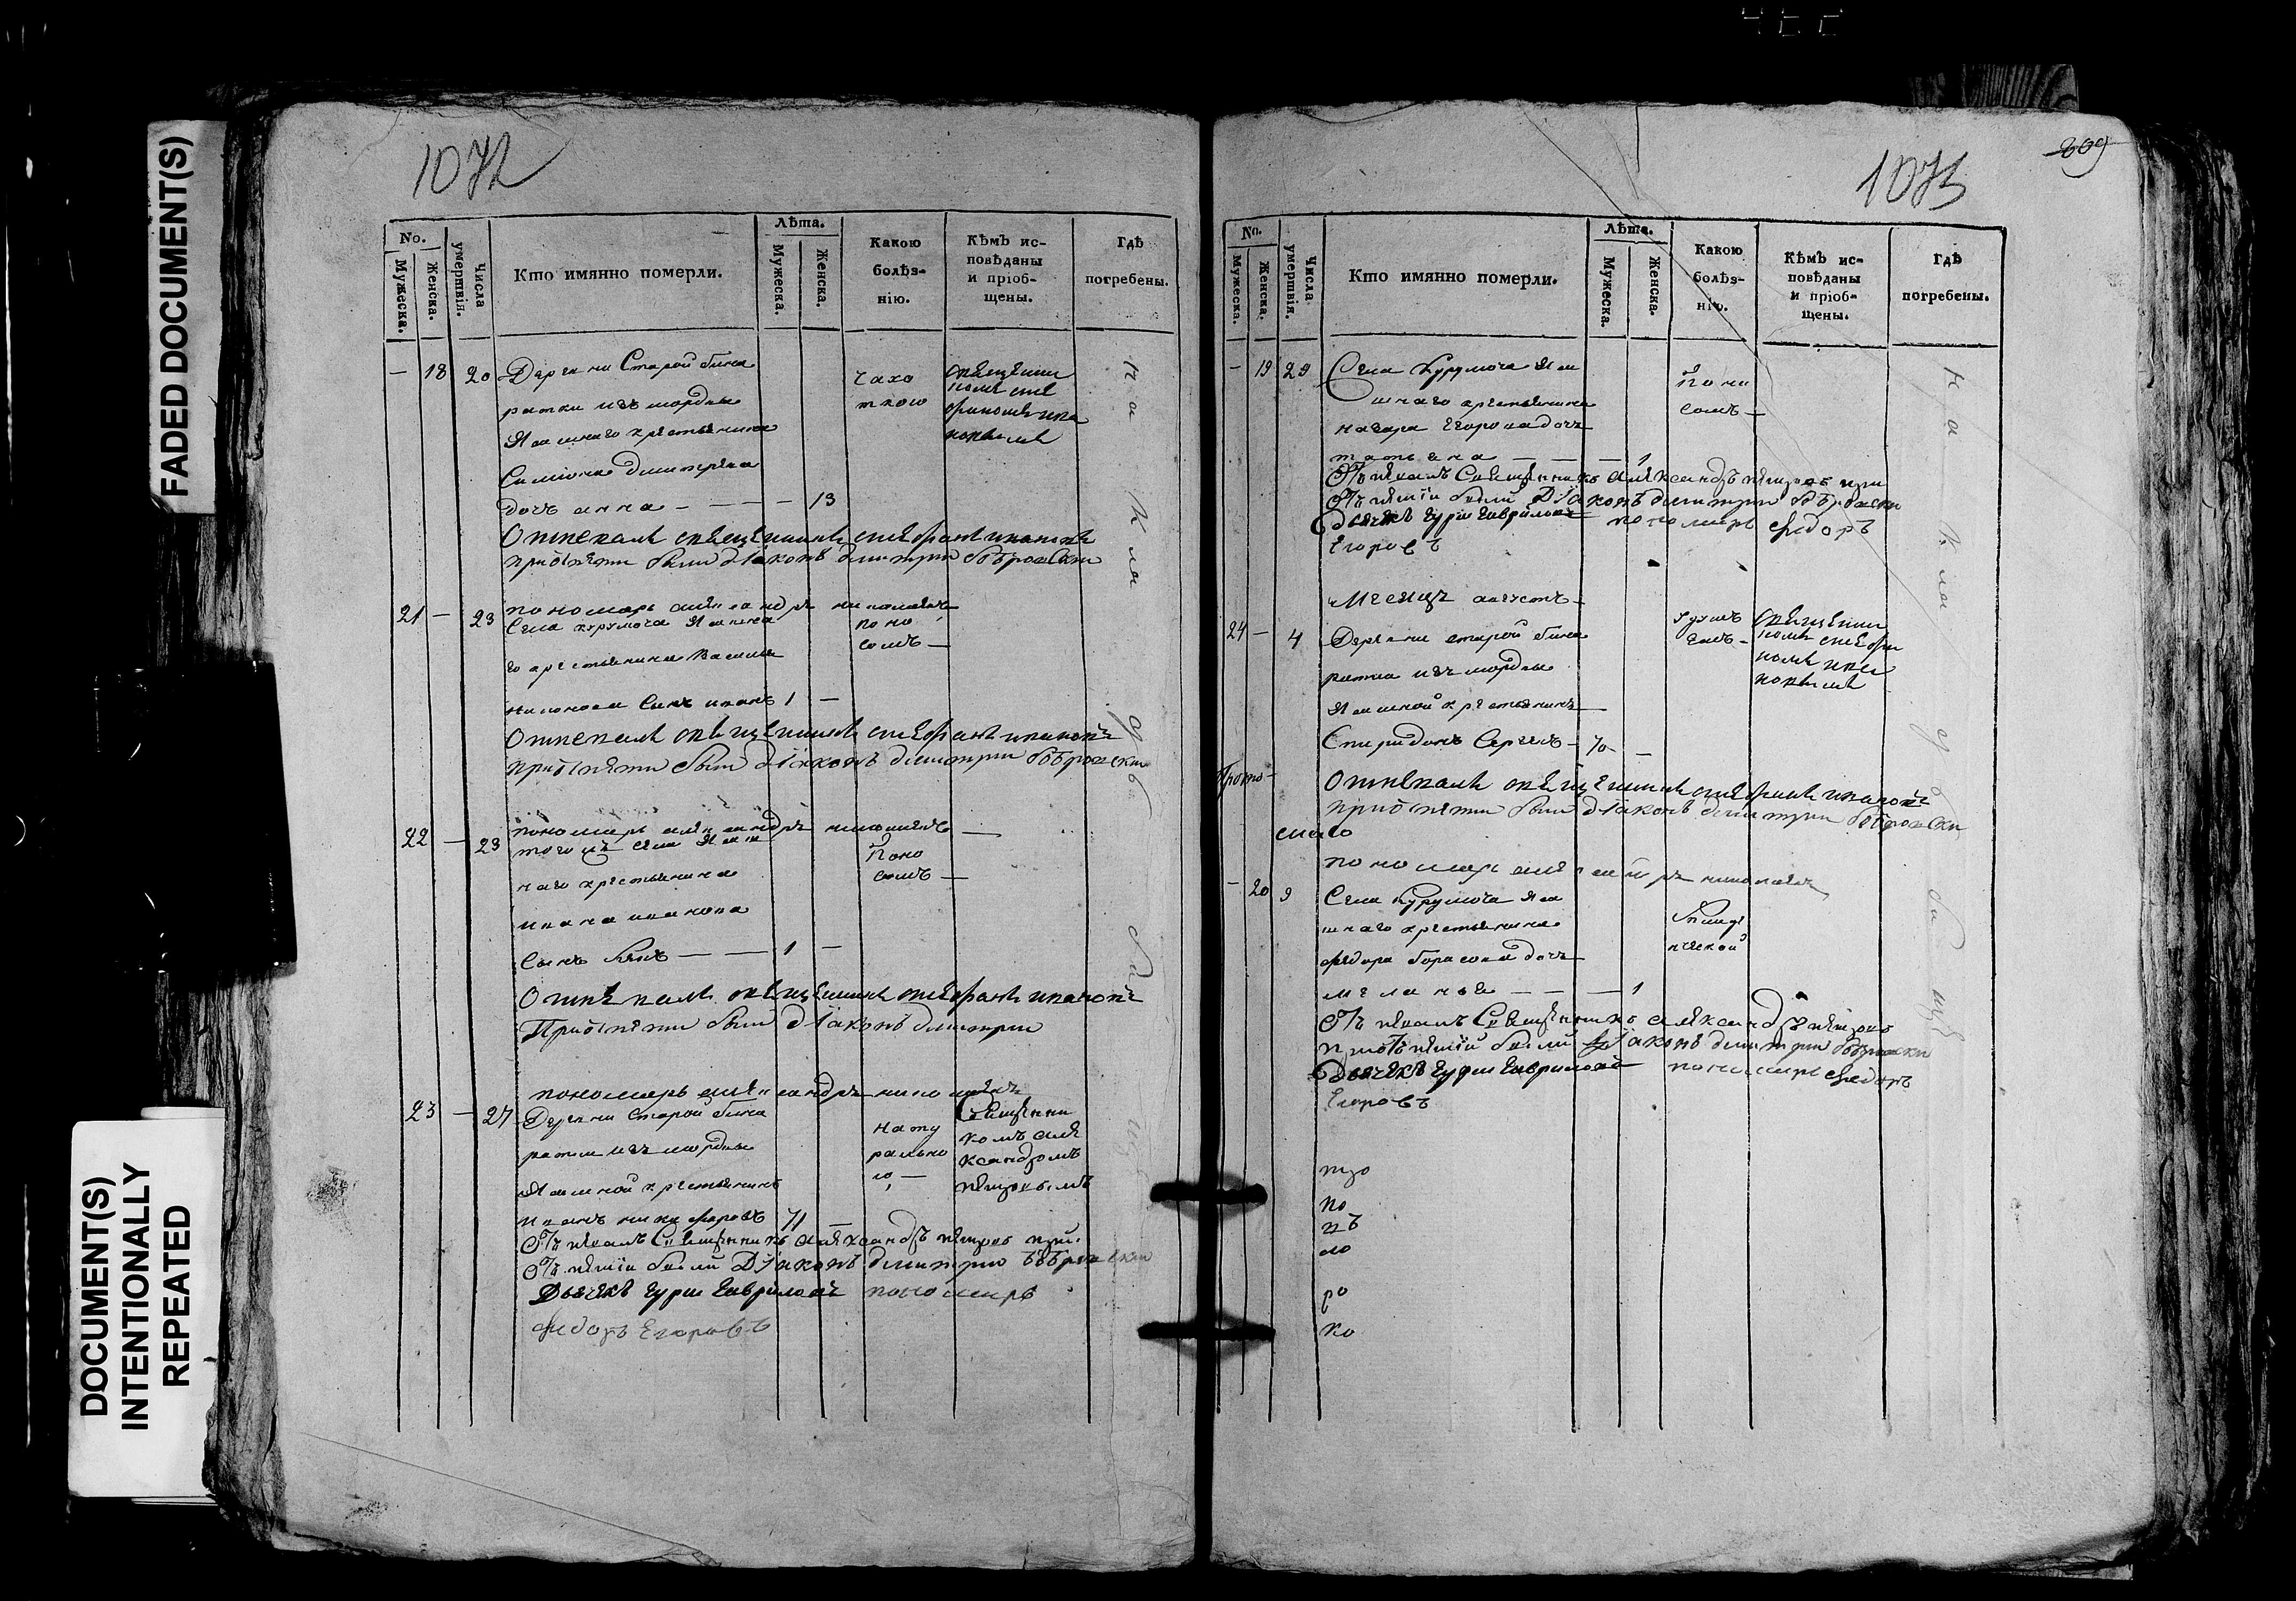 FADED DOCUMENT(S)
DOCUMENT(S)
INTENTIONALLY
REPEATED
1072
No.
Мужеска.
Женска.
Числа
умертвія.
Кто имянно померли.
Лѣта.
Мужеска.
Женска.
Какою
болѣз-
нію.
Кѣмъ ис-
повѣданы
и пріоб-
щены.
Гдѣ
погребены.
— 18 20 Деревни Старой бина
ратки изъ мордвы
Яшнаго крестьянина
Симіона Дмитрева
дочь анна — — — 13
чахо
ткою
священни
комъ сте
фаномъ ива
новымъ
Отпевалъ священникъ стефанъ ивановъ
при отпѣти были діаконъ димитри бобровски
пономарь александръ николаевъ
21 — 23 Села курумоча Яшна
го крестьянина Васильа
сынъ иванъ 1 —
поно
сомъ —
Отпевалъ священникъ стефанъ ивановъ
при отпѣти были діаконъ димитри бобровски
пономарь александръ николаевъ —
22 — 23 тогожъ села Яшш
наго крестьянина
ивана иванова
Сынъ — — 1 —
Поно
сомъ —
Отпѣвалъ священникъ стефанъ ивановъ
При отпѣти были діаконъ димитри
пономарь александръ николаевъ
23 — 27 Деревни Старой бина
ратки изъ мордвы
Яшшной крестьянинъ
иванъ никифоровъ 71 —
нату
рально
ю —
Священни
комъ але
ксандромъ
петровымъ
Отъпевалъ Священникъ александръ петровъ при
отъпетіи были Діаконъ димитри бобровски
Дьячекъ гури гавриловъ пономарь
федоръ Егоровъ
на кладбищѣ
1073
809
No.
Мужеска.
Женска.
Числа
умертвія.
Кто имянно померли.
Лѣта.
Мужеска.
Женска.
Какою
болѣз-
нію.
Кѣмъ ис-
повѣданы
и пріоб-
щены.
Гдѣ
погребены.
— 19 29 Села Курумоча Яш
шнаго крестьянина
назара Егорова дочь
татьяна — — — 1
Поно
сомъ —
Отъпевалъ Священникъ александръ петровъ при
отъпетіи были Діаконъ димитри бобровски
Дьячекъ гури гавриловъ пономарь федоръ
Егоровъ
Месяцъ августъ —
24 — 4 Деревни старой бина
ратки изъ мордвы
Яшшной крестьянинъ —
Спиридонъ Сергеевъ — 70 —
удушь
емъ —
священни
комъ стефа
номъ ива
новымъ
Прото-
Отпевалъ священникъ стефанъ ивановъ
при отпѣти были діаконъ димитри бобровски
пономарь александръ николаевъ
— 20 9 Села Курумоча Яш
шнаго крестьянина
федора борисова дочь
меланья — — — 1
Отъпевалъ Священникъ александръ петровъ
при отъпетіи были Діаконъ димитри бобровски
Дьячекъ гури гавриловъ пономарь федоръ
Егоровъ
на кладбищѣ
по
ро
ко